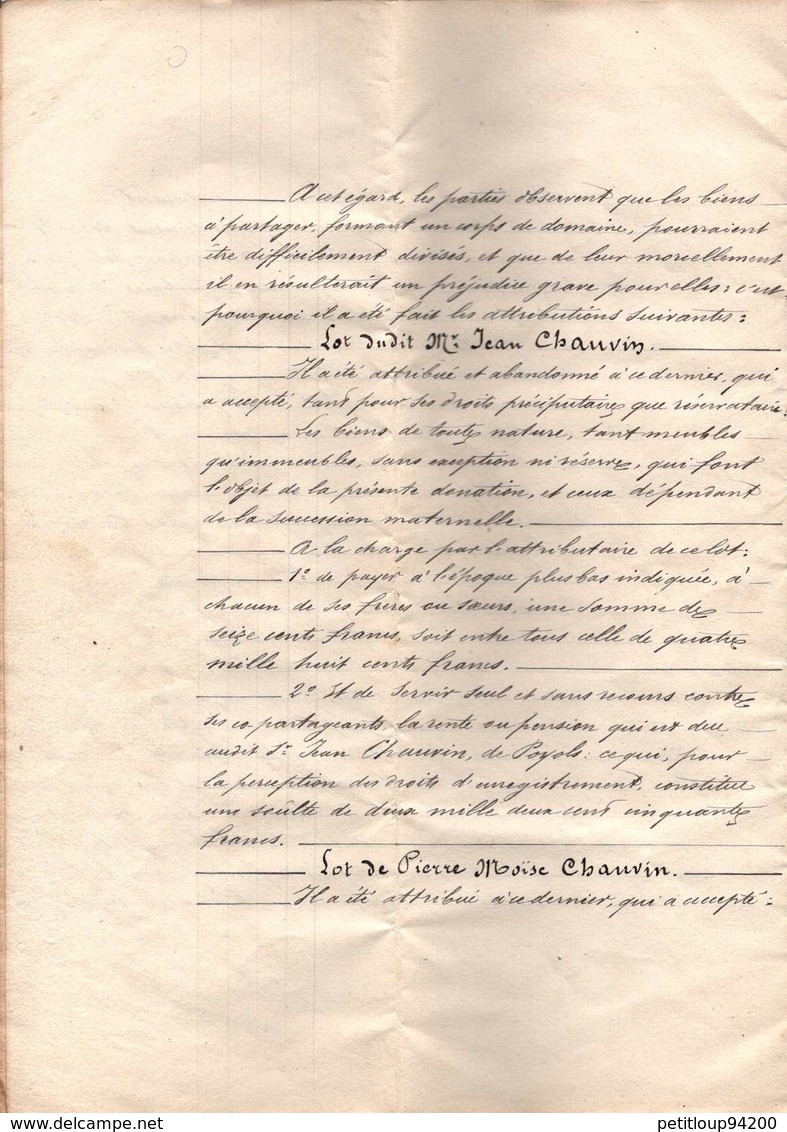 A cet égard, les parties observent que les biens
à partager, formant un corps de domaine, pourraient
être difficilement divisés, et que de leur morcellement
il en résulterait un préjudice grave pour elles; c'est
pourquoi il a été fait les attributions suivantes:
Lot dudit Mr. Jean Chauvin.
Il a été attribué et abandonné à ce dernier, qui
a accepté, tant pour ses droits préciputaires que réservataires:
Les biens de toutes nature, tant meubles
qu'immeubles, sans exception ni réserve, qui font
l'objet de la présente donation, et ceux dépendant
de la succession maternelle.
A la charge par l'attributaire de ce lot:
1º de payer à l'époque plus bas indiquée, à
chacun de ses frères ou sœurs, une somme de
seize cents francs, soit entre tous celle de quatre
mille huit cents francs.
2º Et de servir seul et sans recours contre
ses co partageants la rente ou pension qui est due
audit Sr. Jean Chauvin, de Poyols: ce qui, pour
la perception des droits d'enregistrement, constitue
une soûlte de deux mille deux cent cinquante
francs.
Lot de Pierre Moïse Chauvin.
Il a été attribué à ce dernier, qui a accepté:
delcampe.net
petitloup94200